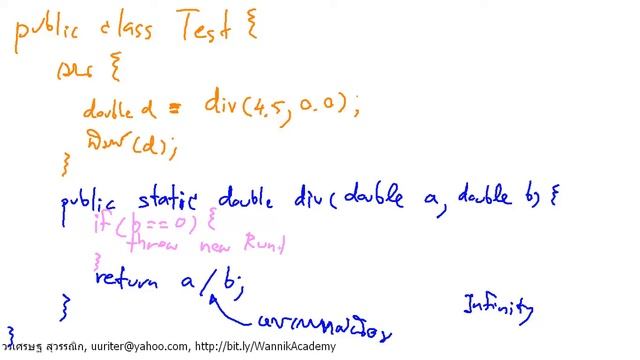 public class Test {
{
double d = div(4.5, 0.0);
พิมพ์(d);
}
public static double div(double a, double b) {
if(b==0) {
throw new Runt
}
return a/b;
Infinity
}
}
วรเศรษฐ สุวรรณิก, uuriter@yahoo.com, http://bit.ly/WannikAcademy